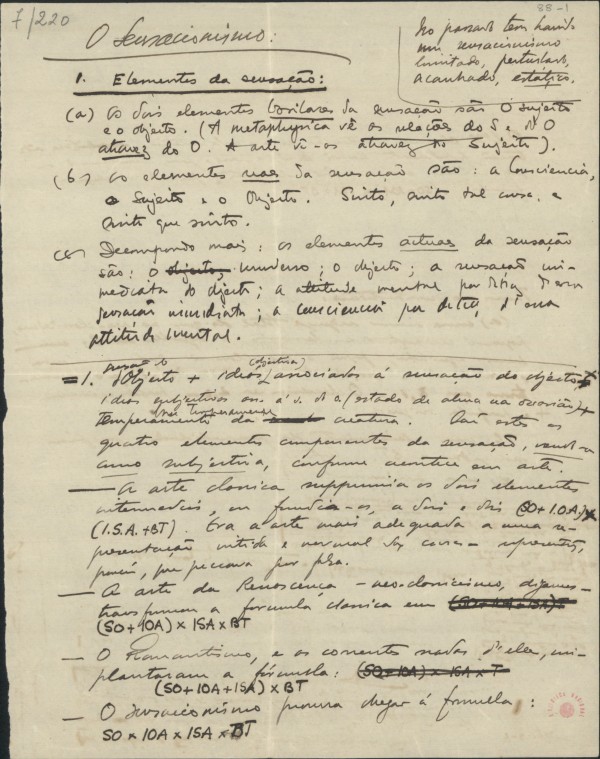 7/220
88-1
O Sensacionismo:
No passado tem havido
um sensacionismo
limitado, perturbado,
acanhado, estatico.
1. Elementos da sensação:
(a) Os dois elementos basilares da sensação são O Sujeito
e o Objecto. (A metaphysica vê as relações do S e do O
atravez do O. A arte vê-os atravez do Sujeito).
(b) Os elementos reaes da sensação são: a Consciencia,
o Sujeito e o Objecto. Sinto, sinto tal cousa, e
sinto que sinto.
(c) Decompondo mais: os elementos actuaes da sensação
são: o objecto, universo; o objecto; a sensação im-
mediata do objecto; a attitude mental por detraz d'essa
sensação immediata; a consciencia por detraz d'essa
attitude mental.
1. Objecto + idéas (objectivas) associadas á sensação do objecto +
idéas subjectivas ass. á s. do o (estado de alma na occasião) +
temperamento da creatura. São estes os
quatro elementos componentes da sensação,
como subjectiva, conforme acontece em arte.
— A arte classica supprimia os dois elementos
intermedios, ou fundia-os, a dois e dois (SO + I.O.A.) x
(I.S.A. + BT). Era a arte mais adequada a uma re-
presentação nitida e normal das cousas
porém, que peccava por
— A arte da Renascença — neo-classicismo, digamos —
transformou a formula classica em
(SO + IOA) x ISA x BT
— O Romantismo, e as correntes nadas d'elle, im-
plantaram a fórmula: (SO + IOA) x ISA x T
(SO + IOA + ISA) x BT
— O sensacionismo procura chegar á formula:
SO x IOA x ISA x BT